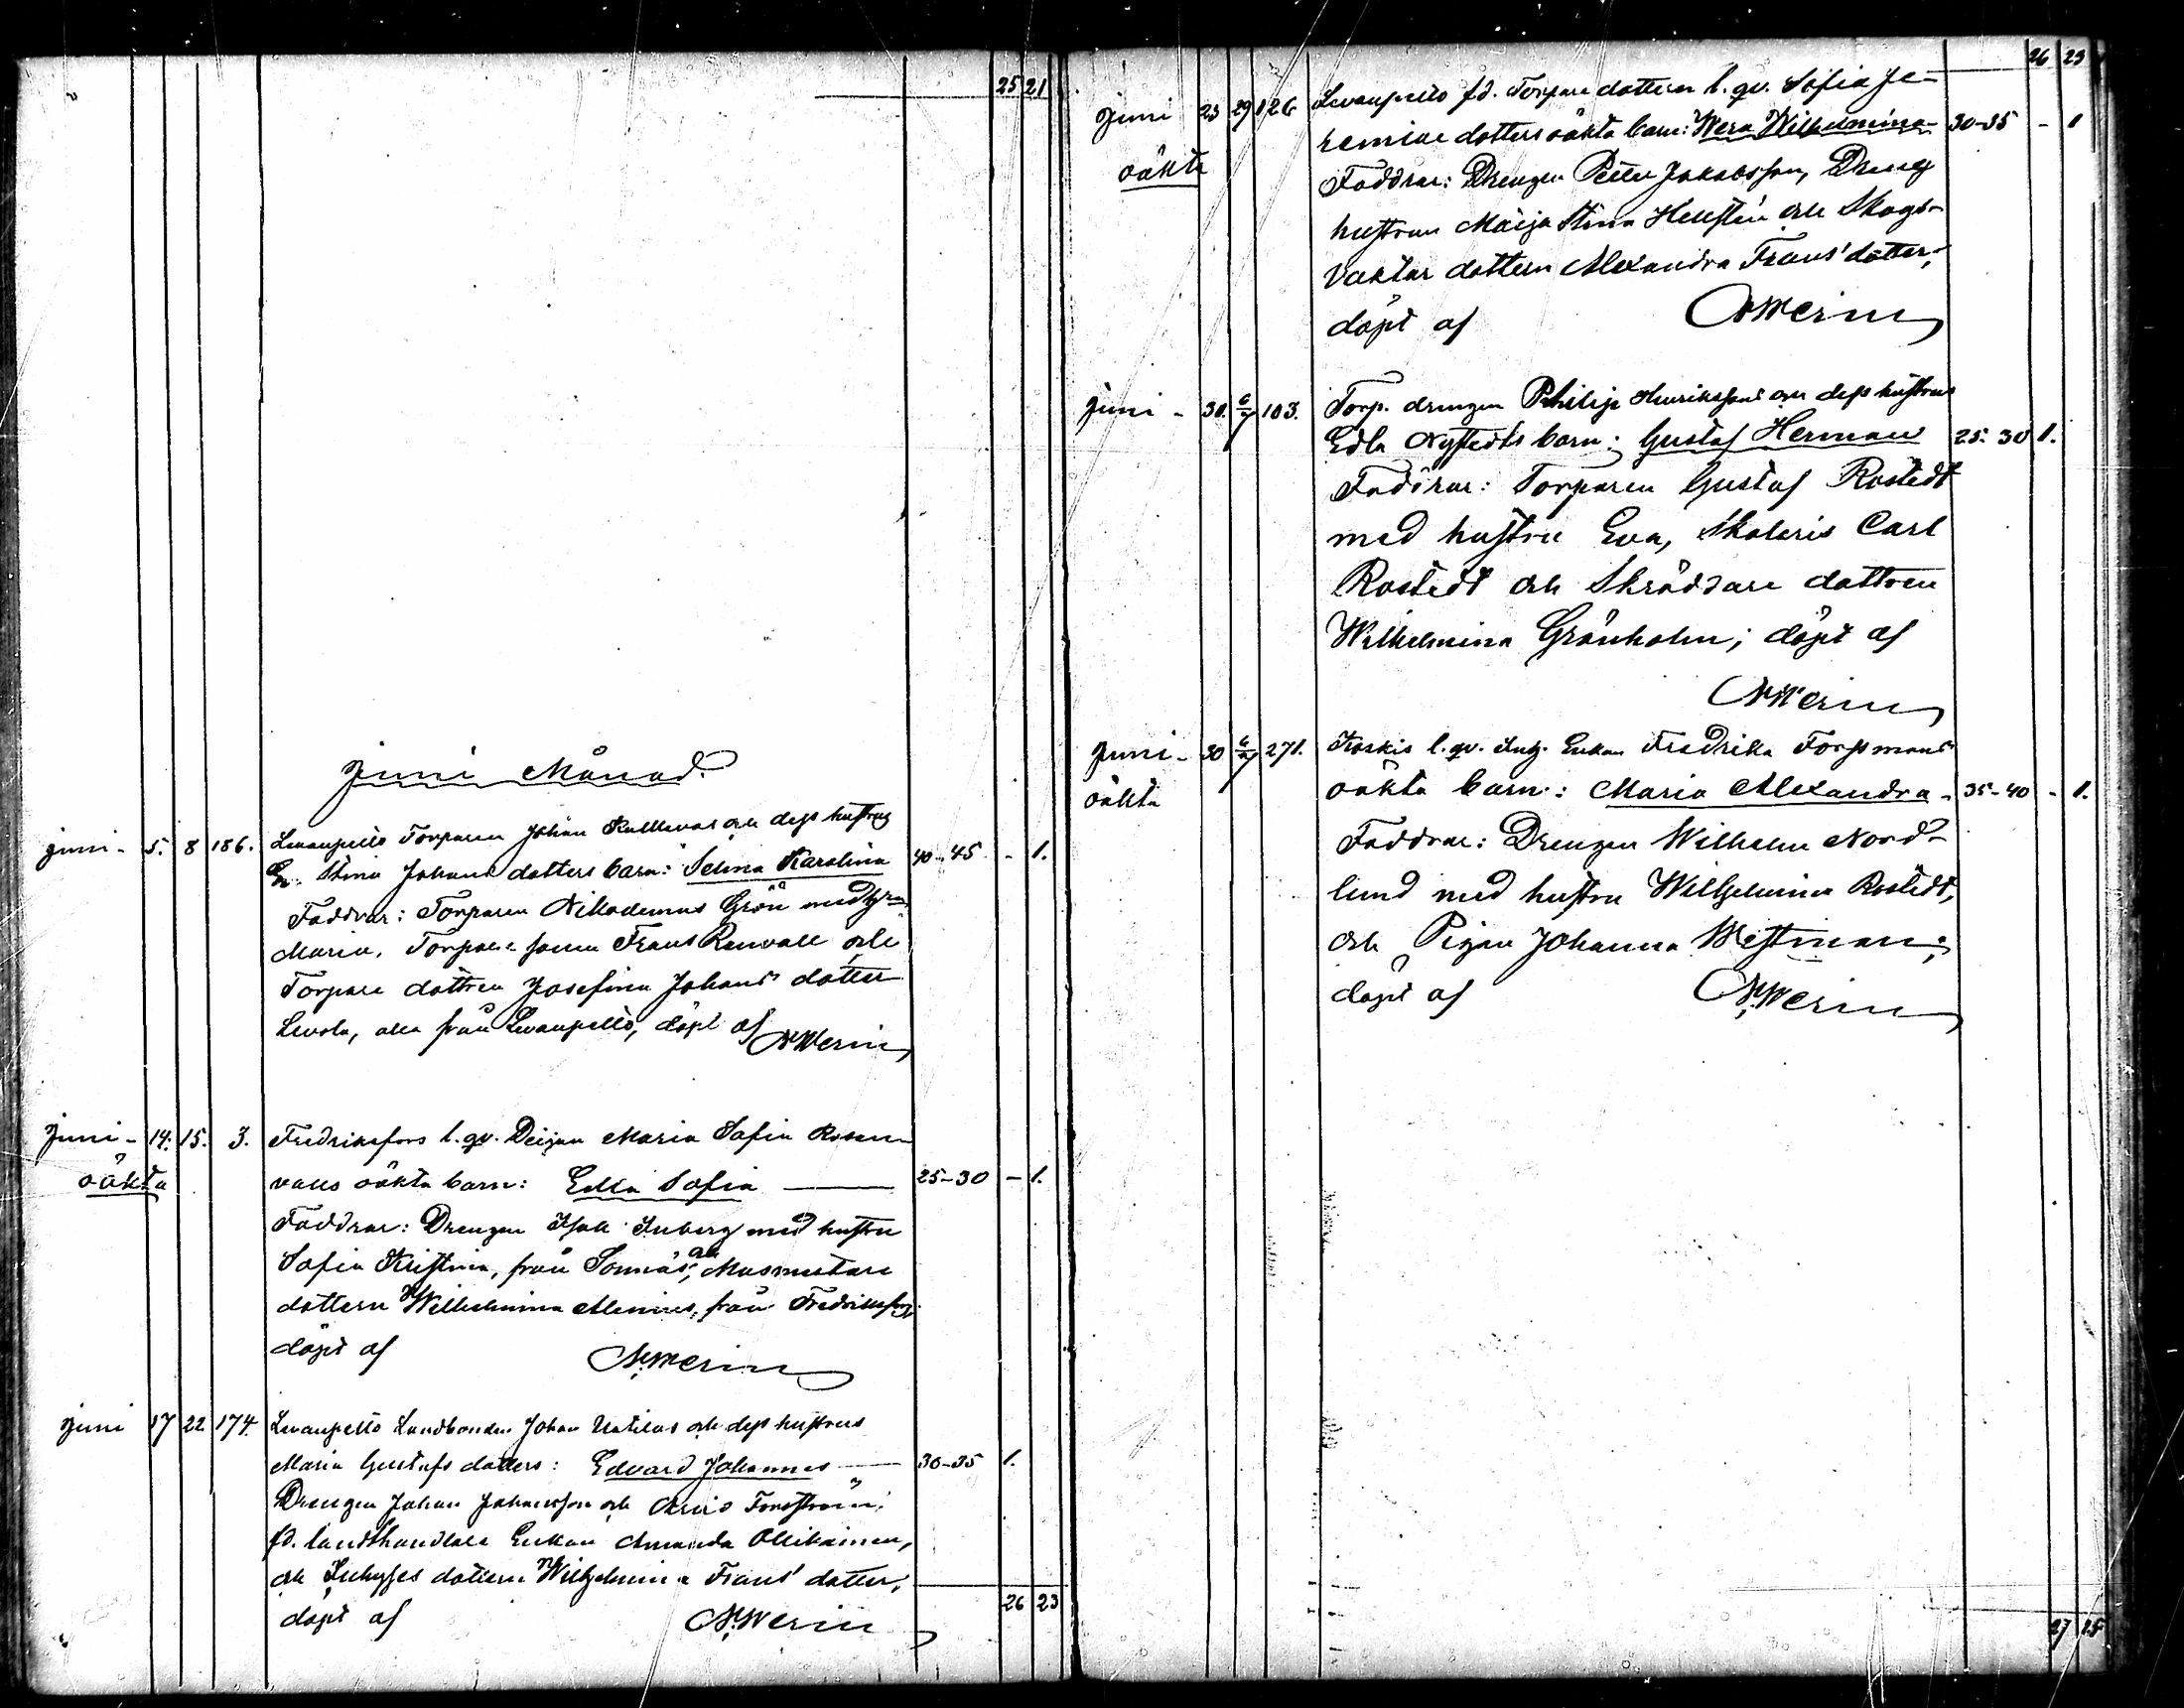 25 21
Juni Månad.
Juni - 5. 8 186. Levanpelto Torparen Johan Kullevas och dess hustrus
E. Stina Johans dotters barn: Selma Karolina 40-45 - 1.
Faddrar: Torparen Nikodemus Grön med h:ru
Maria, Torpare sonen Frans Renvall och
Torpare dottren Josefina Johans dotter
Levola, alla från Levanpelto, döpt af NWerin
Juni - 14. 15. 3. Fredriksfors l. qv. Deijan Maria Sofia Rosen-
oäkta valls oäkta barn: Edla Sofia 25-30 - 1.
Faddrar: Drengen Isak Inberg med hustru
Sofia Kristina, från Sonnäs, och Masmästare
dottern Wilhelmina Alenius, från Fredriksfors
döpt af NWerin
Juni 17 22 174. Levanpelto Landbonden Johan Uotilas och dess hustrus
Maria Gustafs dotters: Edvard Johannes 30-35 1.
Drengen Johan Johansson och Forsström,
fd. landthandlare Enkan Amanda Ollikainen,
och Inhyses dottern Wilhelmina Frans' dotter,
döpt af NWerin
26 23
26 23
Juni 23 29 126 Levanpelto fd. Torpare dottern l. qv. Sofia Je-
remiae dotters oäkta barn: Wera Wilhelmina 30-35 - 1
oäkta Faddrar: Drengen Petter Jakobsson, Dreng
hustrun Maija Stina Hellstén och Skogs-
vaktar dottern Alexandra Frans' dotter;
döpt af NWerin
Juni - 30. 6/7 103. Torp. drengen Philip Henrikssons och dess hustrus
Edla Nystedts barn: Gustaf Herman 25-30 1.
Faddrar: Torparen Gustaf Rostedt
med hustru Eva, Skolaris Carl
Rostedt och Skräddare dottren
Wilhelmina Grönholm; döpt af
NWerin
Juni - 30 6/7 271. Koskis l. qv. Inh. Enkan Fredrika Forssmans
oäkta oäkta barn: Maria Alexandra - 35-40 - 1.
Faddrar: Drengen Wilhelm Nord-
lund med hustru Wilhelmina Rostedt,
och Pigan Johanna Westman;
döpt af NWerin
27 25